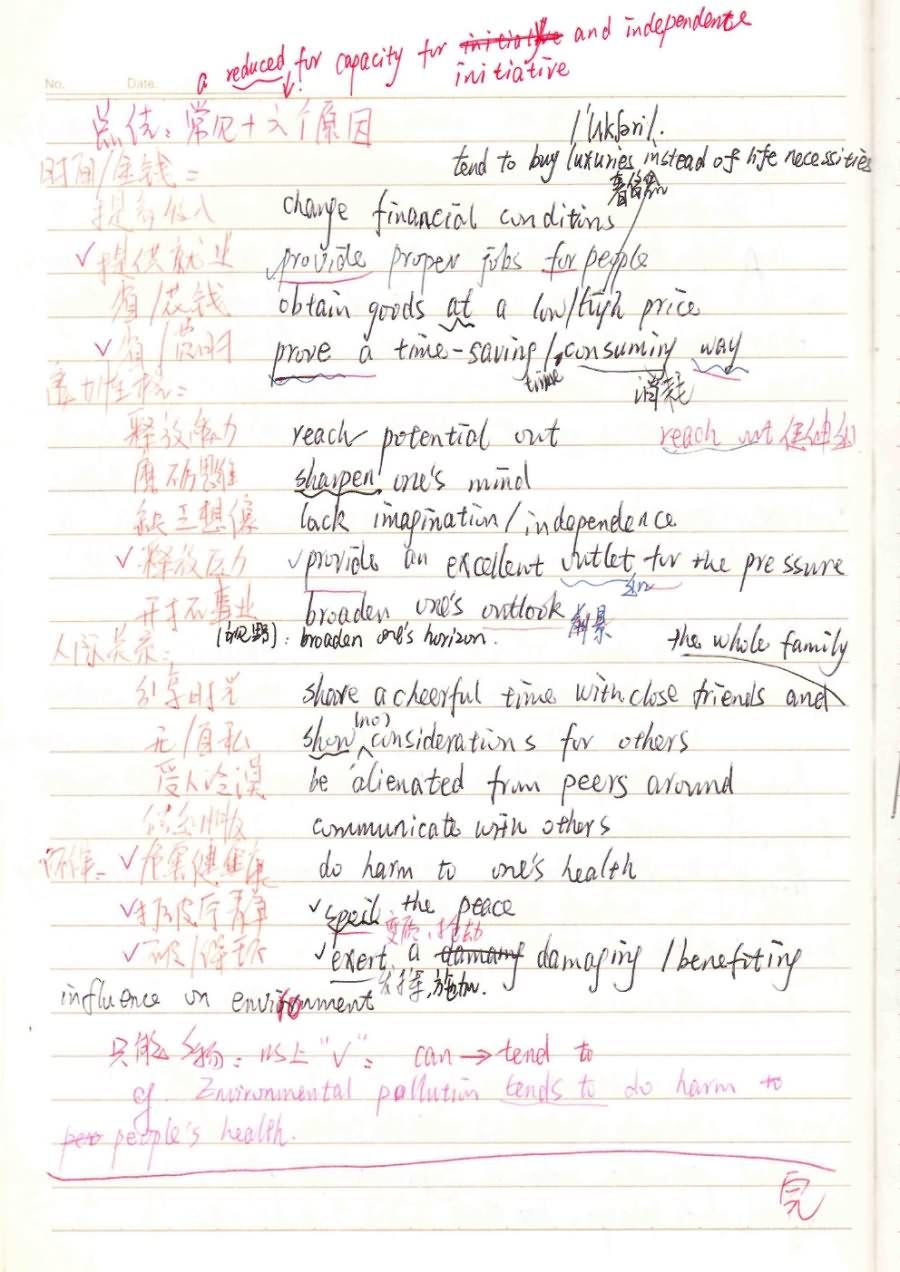 a reduced for capacity for initiative and independente
initiative
No. Date.
总结:常见十六个原因
/'lʌkʃəri/.
tend to buy luxuries instead of life necessities
奢侈品
时间/金钱:
提高收入 change financial conditins
✓提供就业 ✓provide proper jobs for people
省/花钱 obtain goods at a low/high price
✓省/费时 prove a time-saving/consuming way
time 消耗
能力/性格:
释放潜力 reach potential out reach out 使伸出
磨砺思维 sharpen one's mind
缺乏想像 lack imagination/independence
✓释放压力 ✓provide an excellent outlet for the pressure
开拓事业 broaden one's outlook 前景
(视野): broaden one's horizon.
人际关系: the whole family
分享时光 share a cheerful time with close friends and
无/自私 show (no) considerations for others
受人冷漠 be alienated from peers around
communicate with others
✓危害健康 do harm to one's health
✓打破宁静 ✓spoil the peace
变质,
✓破/保环 ✓exert a damany damaging /benefiting
发挥,施加.
influence on environment
只能 物:以上"✓": can → tend to
eg. Environmental pollution tends to do harm to
peo people's health.
完